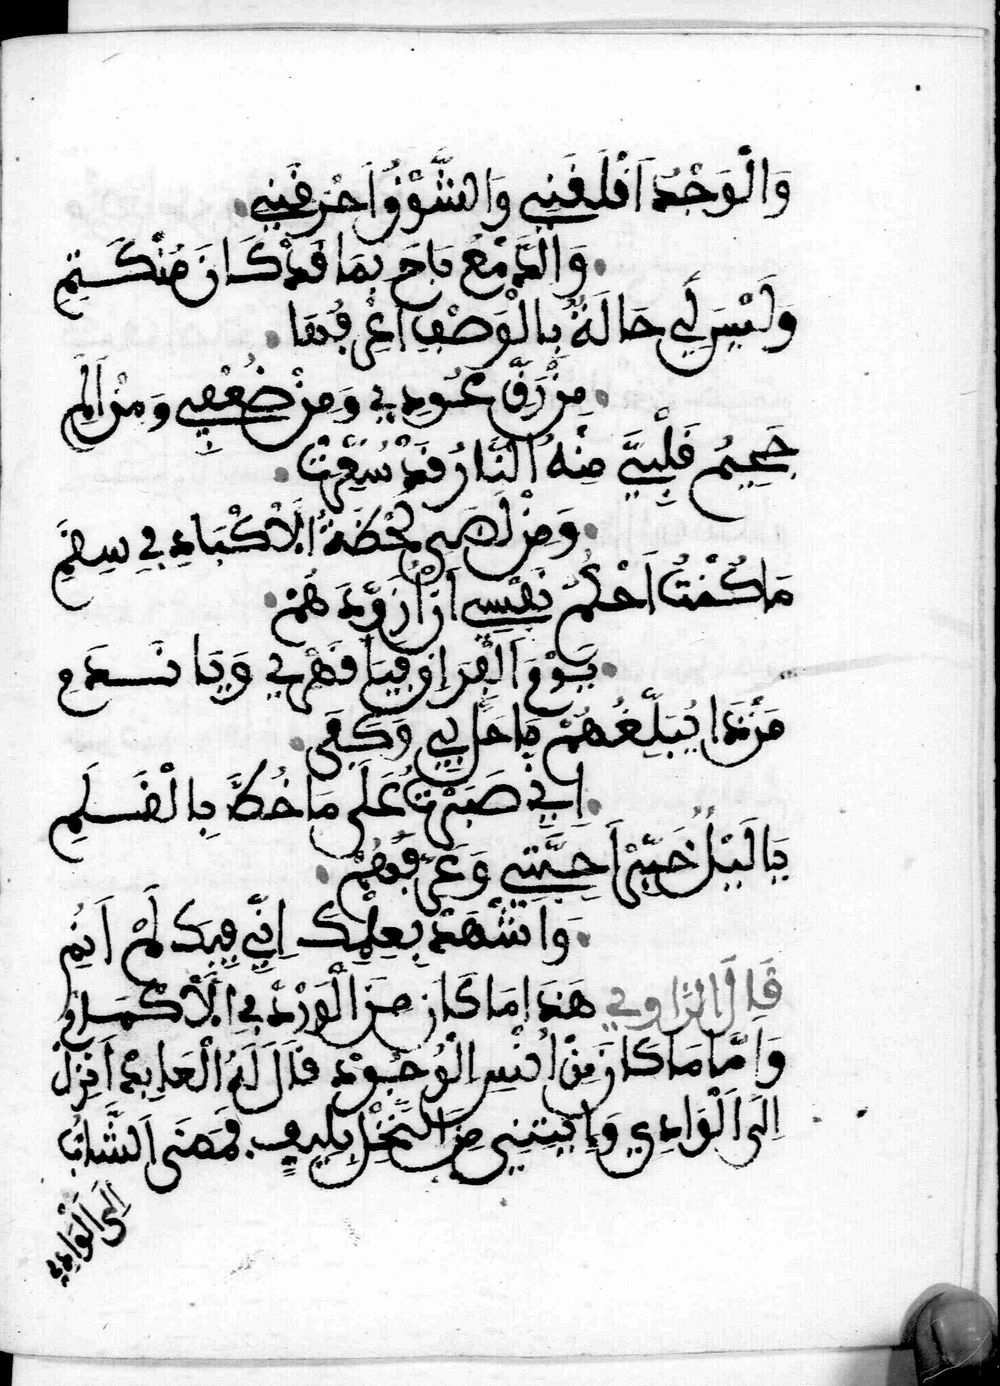 وَالْوَجْدُ اَقْلَقَنِي وَالشَّوْقُ اَحْرَقَنِي
وَالدَّمْعُ بَاحَ بِمَا قَدْ كَانَ مُنْكَتِمِ
وَلَيْسَ لِي حَالَةٌ بِالْوَصْفِ اَعْرِفُهَا
مِنْ رَقِّ عُودِي وَمِنْ ضُعْفِي وَمِنْ اَلَمِ
جَحِيمُ قَلْبِيَ مِنْهُ النَّارُ قَدْ سُعِّرَتْ
وَمِنْ لَظَى لَحْظَةُ الْاَكْبَادِ فِي سِقَمِ
مَا كُنْتُ اَحْكُمُ نَفْسِي اَنْ اُزَوِّدَهُمْ
يَوْمَ الْفِرَاقِ فَيَا قَهْرِي وَيَا نَدَمِ
مَنْ ذَا يُبَلِّغُهُمْ مَا حَلَّ بِي وَكَفَى
اِنِّي صَبَرْتُ عَلَى مَا خُطَّ بِالْقَلَمِ
يَا لَيْلُ خَبِّرْ اَحِبَّتِي وَعَرِّفْهُمْ
وَاشْهَدْ بِعِلْمِكَ اِنِّي فِيكَ لَمْ اَنُمِ
قَالَ الرَّاوِي هَذَا مَا كَانَ مِنَ الْوَرْدِ فِي الْاَكْمَامِ
وَاَمَّا مَا كَانَ مِنْ اُنْسِ الْوُجُودِ قَالَ لَهُ الْعَابِدُ اَنْزِلْ
اِلَى الْوَادِي وَاِيتِنِي مِنَ النَّخْلِ بِلِيفٍ. فَمَضَى الشَّابُّ
اِلَى الْوَادِي